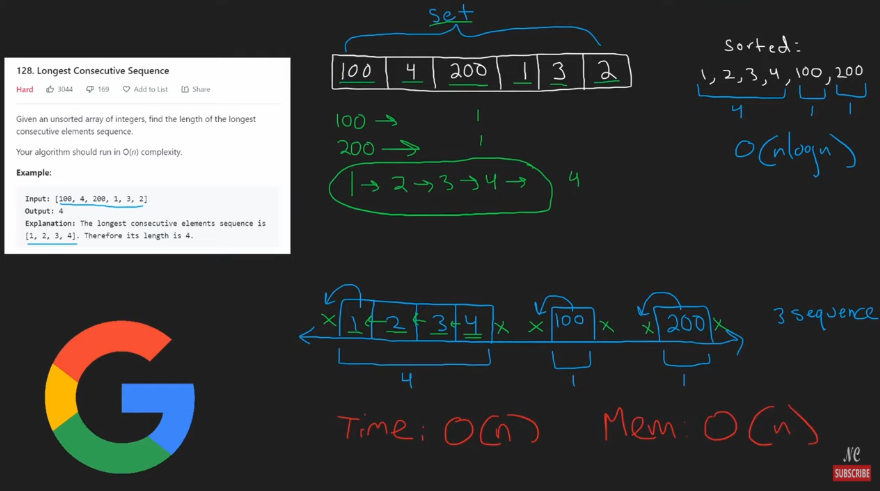 set
128. Longest Consecutive Sequence
Hard 3044 169 Add to List Share
Given an unsorted array of integers, find the length of the longest
consecutive elements sequence.
Your algorithm should run in O(n) complexity.
Example:
Input: [100, 4, 200, 1, 3, 2]
Output: 4
Explanation: The longest consecutive elements sequence is
[1, 2, 3, 4]. Therefore its length is 4.
100 4 200 1 3 2
100 → 1
200 → 1
1 → 2 → 3 → 4 → 4
sorted:
1, 2, 3, 4, 100, 200
4 1 1
O(nlogn)
x 1 ← 2 ← 3 ← 4 x x 100 x x 200 x
3 sequence
4 1 1
Time: O(n) Mem: O(n)
NC
SUBSCRIBE